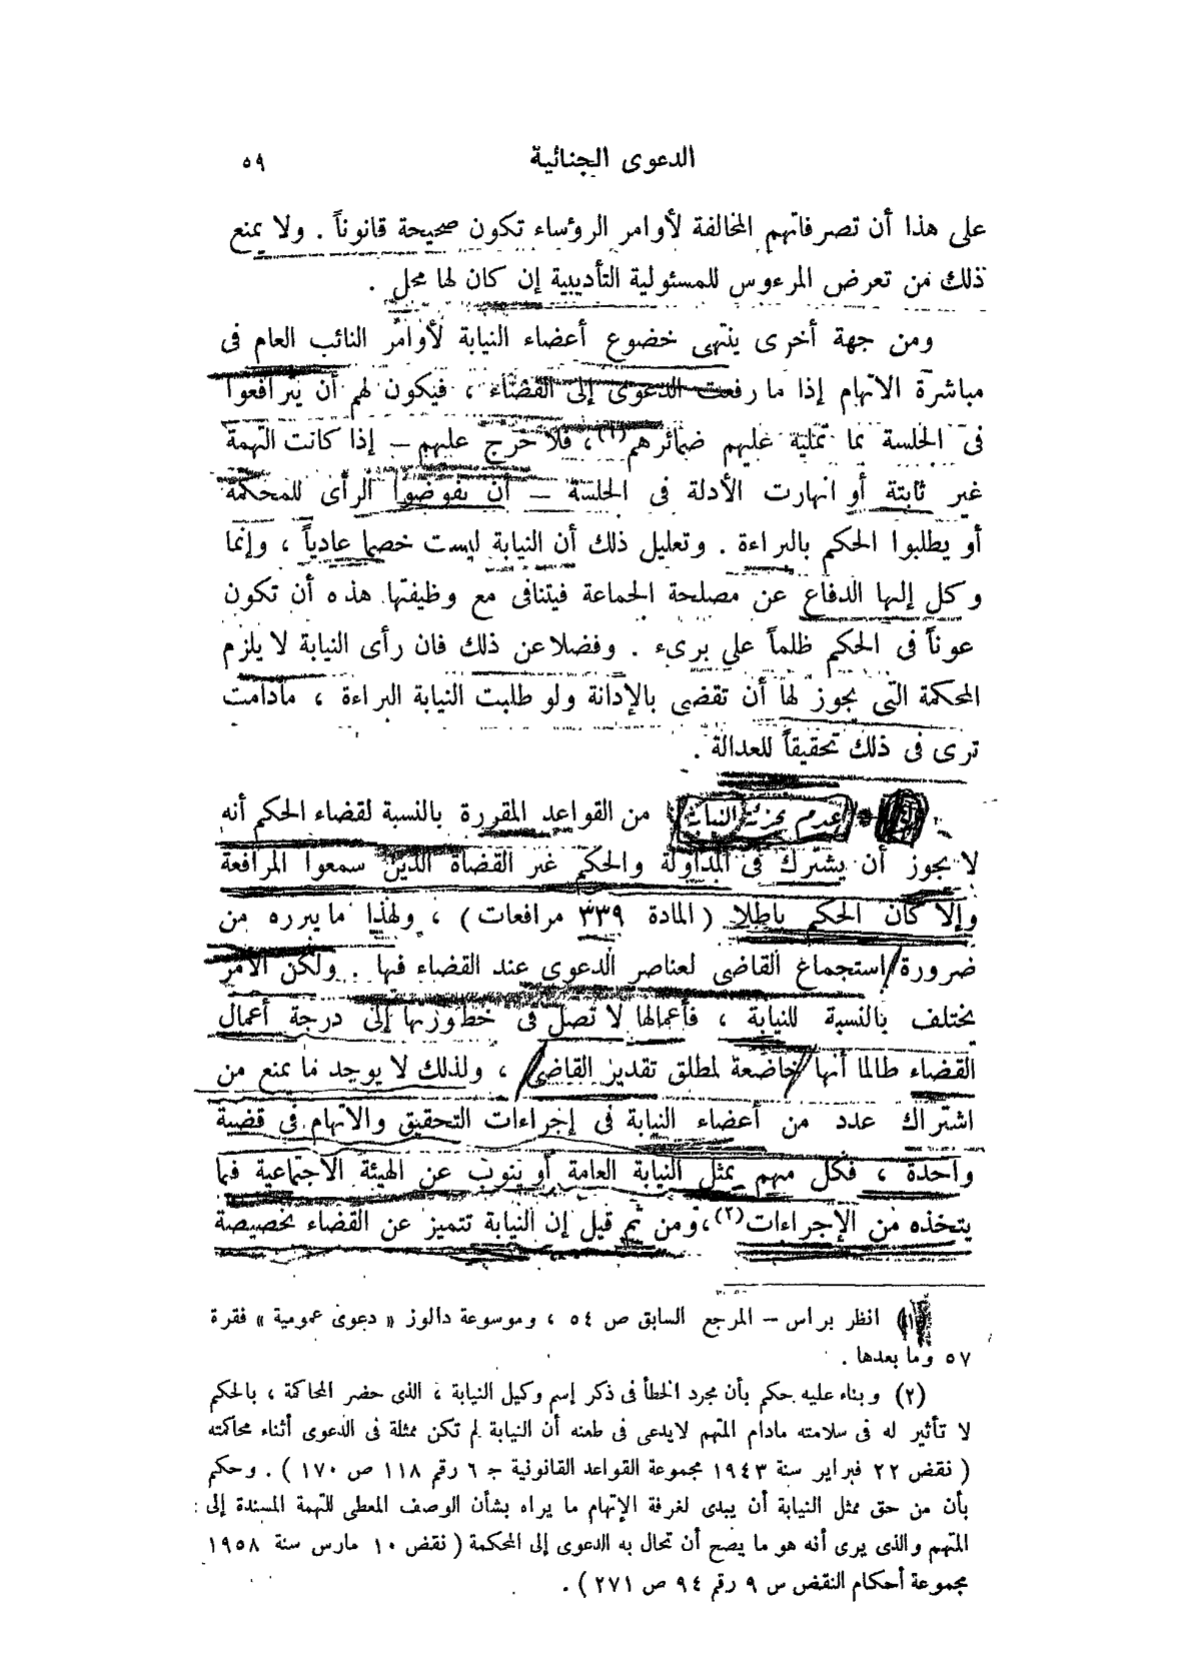 الدعوى الجنائية ٥٩
على هذا أن تصرفاتهم المخالفة لأوامر الرؤساء تكون صحيحة قانوناً . ولا يمنع
ذلك من تعرض المرءوس للمسئولية التأديبية إن كان لها محل .
ومن جهة أخرى ينتهى خضوع أعضاء النيابة لأوامر النائب العام فى
مباشرة الاتهام إذا ما رفعت الدعوى إلى القضاء ، فيكون لهم أن يترافعوا
فى الجلسة بما تمليه عليهم ضمائرهم (١) ، فلا حرج عليهم – إذا كانت التهمة
غير ثابتة أو انهارت الأدلة فى الجلسة – أن يفوضوا الرأى للمحكمة
أو يطلبوا الحكم بالبراءة . وتعليل ذلك أن النيابة ليست خصما عادياً ، وإنما
وكل إليها الدفاع عن مصلحة الجماعة فيتنافى مع وظيفتها هذه أن تكون
عوناً فى الحكم ظلماً على برىء . وفضلا عن ذلك فان رأى النيابة لا يلزم
المحكمة التى يجوز لها أن تقضى بالإدانة ولو طلبت النيابة البراءة ، مادامت
ترى فى ذلك تحقيقاً للعدالة .
عدم تجزئة النيابة من القواعد المقررة بالنسبة لقضاء الحكم أنه
لا يجوز أن يشترك فى المداولة والحكم غير القضاة الذين سمعوا المرافعة
وإلا كان الحكم باطلا ( المادة ٣٣٩ مرافعات ) ، ولهذا ما يبرره من
ضرورة استجماع القاضى لعناصر الدعوى عند القضاء فيها . ولكن الأمر
يختلف بالنسبة للنيابة ، فأعمالها لا تصل فى خطورتها إلى درجة أعمال
القضاء طالما أنها خاضعة لمطلق تقدير القاضى ، ولذلك لا يوجد ما يمنع من
اشتراك عدد من أعضاء النيابة فى إجراءات التحقيق والاتهام فى قضية
واحدة ، فكل منهم يمثل النيابة العامة أو ينوب عن الهيئة الاجتماعية فيما
يتخذه من الإجراءات (٢) ، ومن ثم قيل إن النيابة تتميز عن القضاء بخصيصة
(١) انظر براس – المرجع السابق ص ٥٤ ، وموسوعة دالوز « دعوى عمومية » فقرة
٥٧ وما بعدها .
(٢) وبناء عليه حكم بأن مجرد الخطأ فى ذكر إسم وكيل النيابة ، الذى حضر المحاكمة ، بالحكم
لا تأثير له فى سلامته مادام المتهم لايدعى فى طعنه أن النيابة لم تكن ممثلة فى الدعوى أثناء محاكمته
( نقض ٢٢ فبراير سنة ١٩٤٣ مجموعة القواعد القانونية جـ ٦ رقم ١١٨ ص ١٧٠ ) . وحكم
بأن من حق ممثل النيابة أن يبدى لغرفة الإتهام ما يراه بشأن الوصف المعطى للتهمة المسندة إلى
المتهم والذى يرى أنه هو ما يصح أن تحال به الدعوى إلى المحكمة ( نقض ١٠ مارس سنة ١٩٥٨
مجموعة أحكام النقض س ٩ رقم ٩٤ ص ٢٧١ ) .